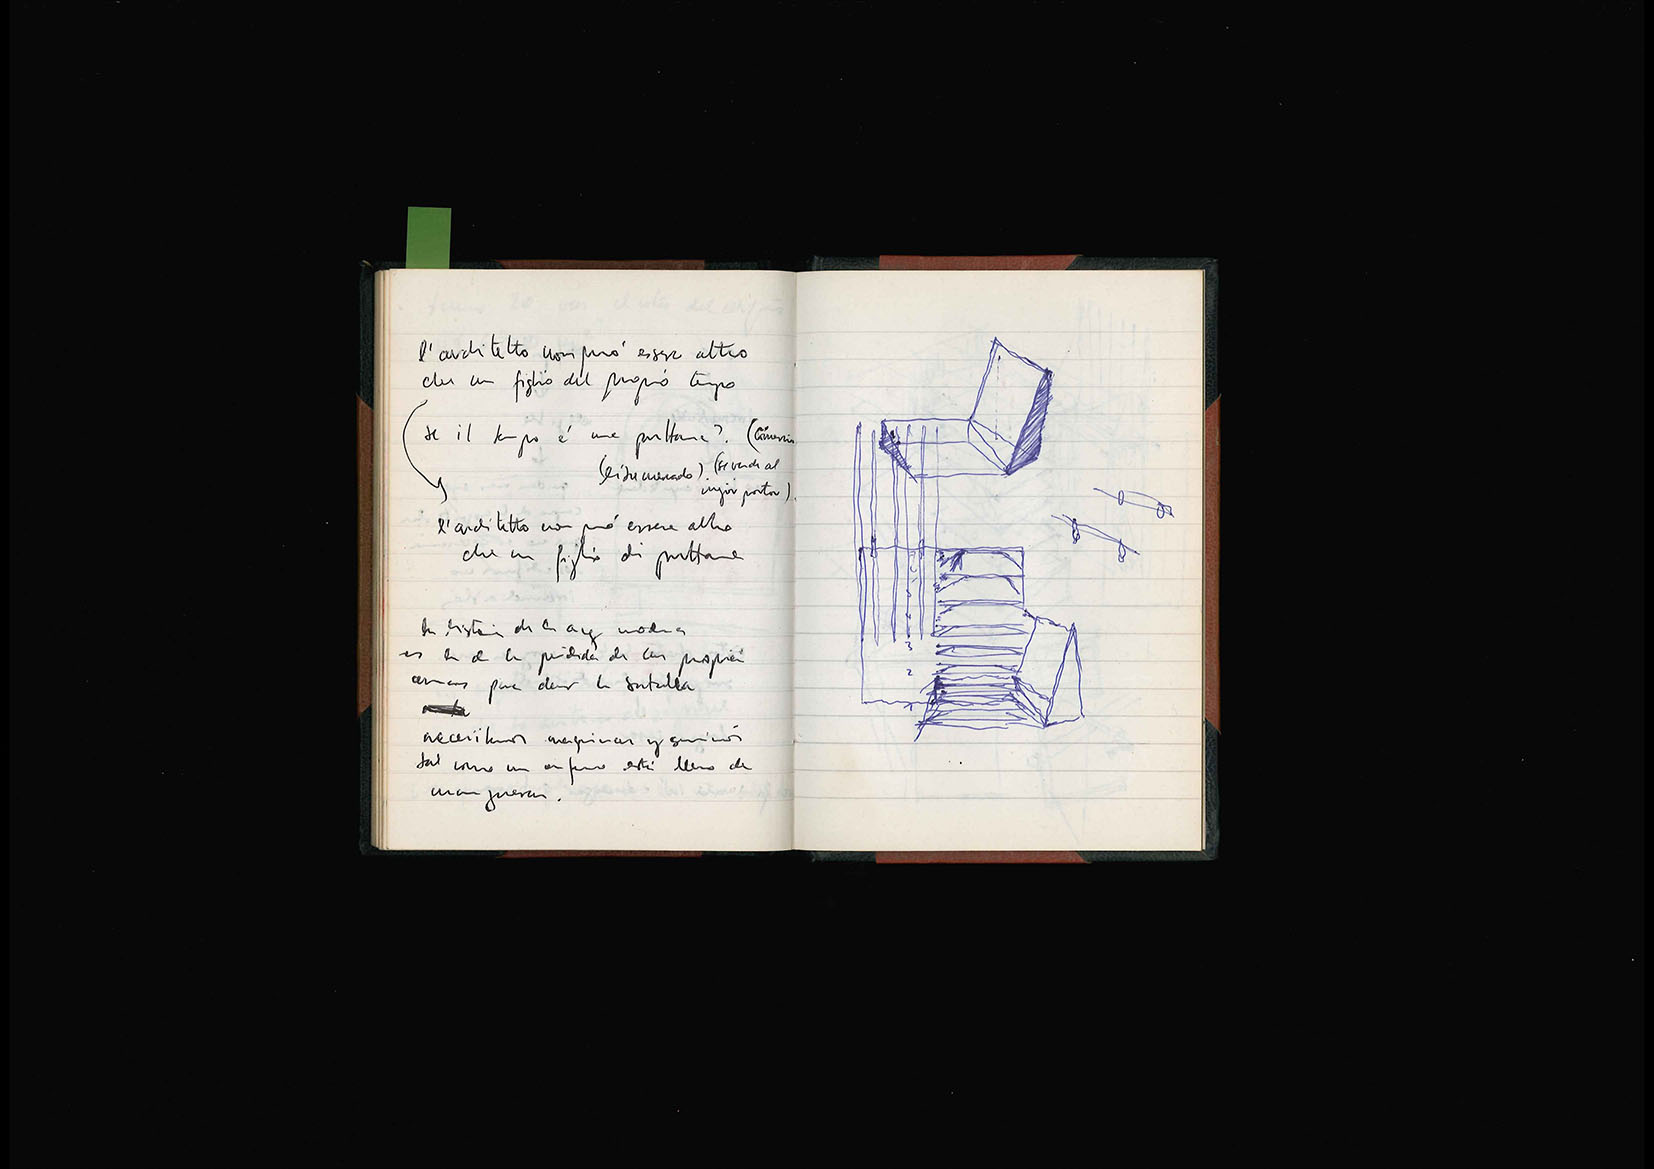 l'architetto non può essere altro
che un figlio del proprio tempo
se il tempo é une puttane?.
(se vende al
mejor postor).
l'architetto non può essere altro
che un figlio di puttane
la historia de la arq moderna
es la de la pérdida de las propias
armas para dar la batalla
necesitamos maquinas y
tal como un enfermo está lleno de
mangueras.
3
2
1